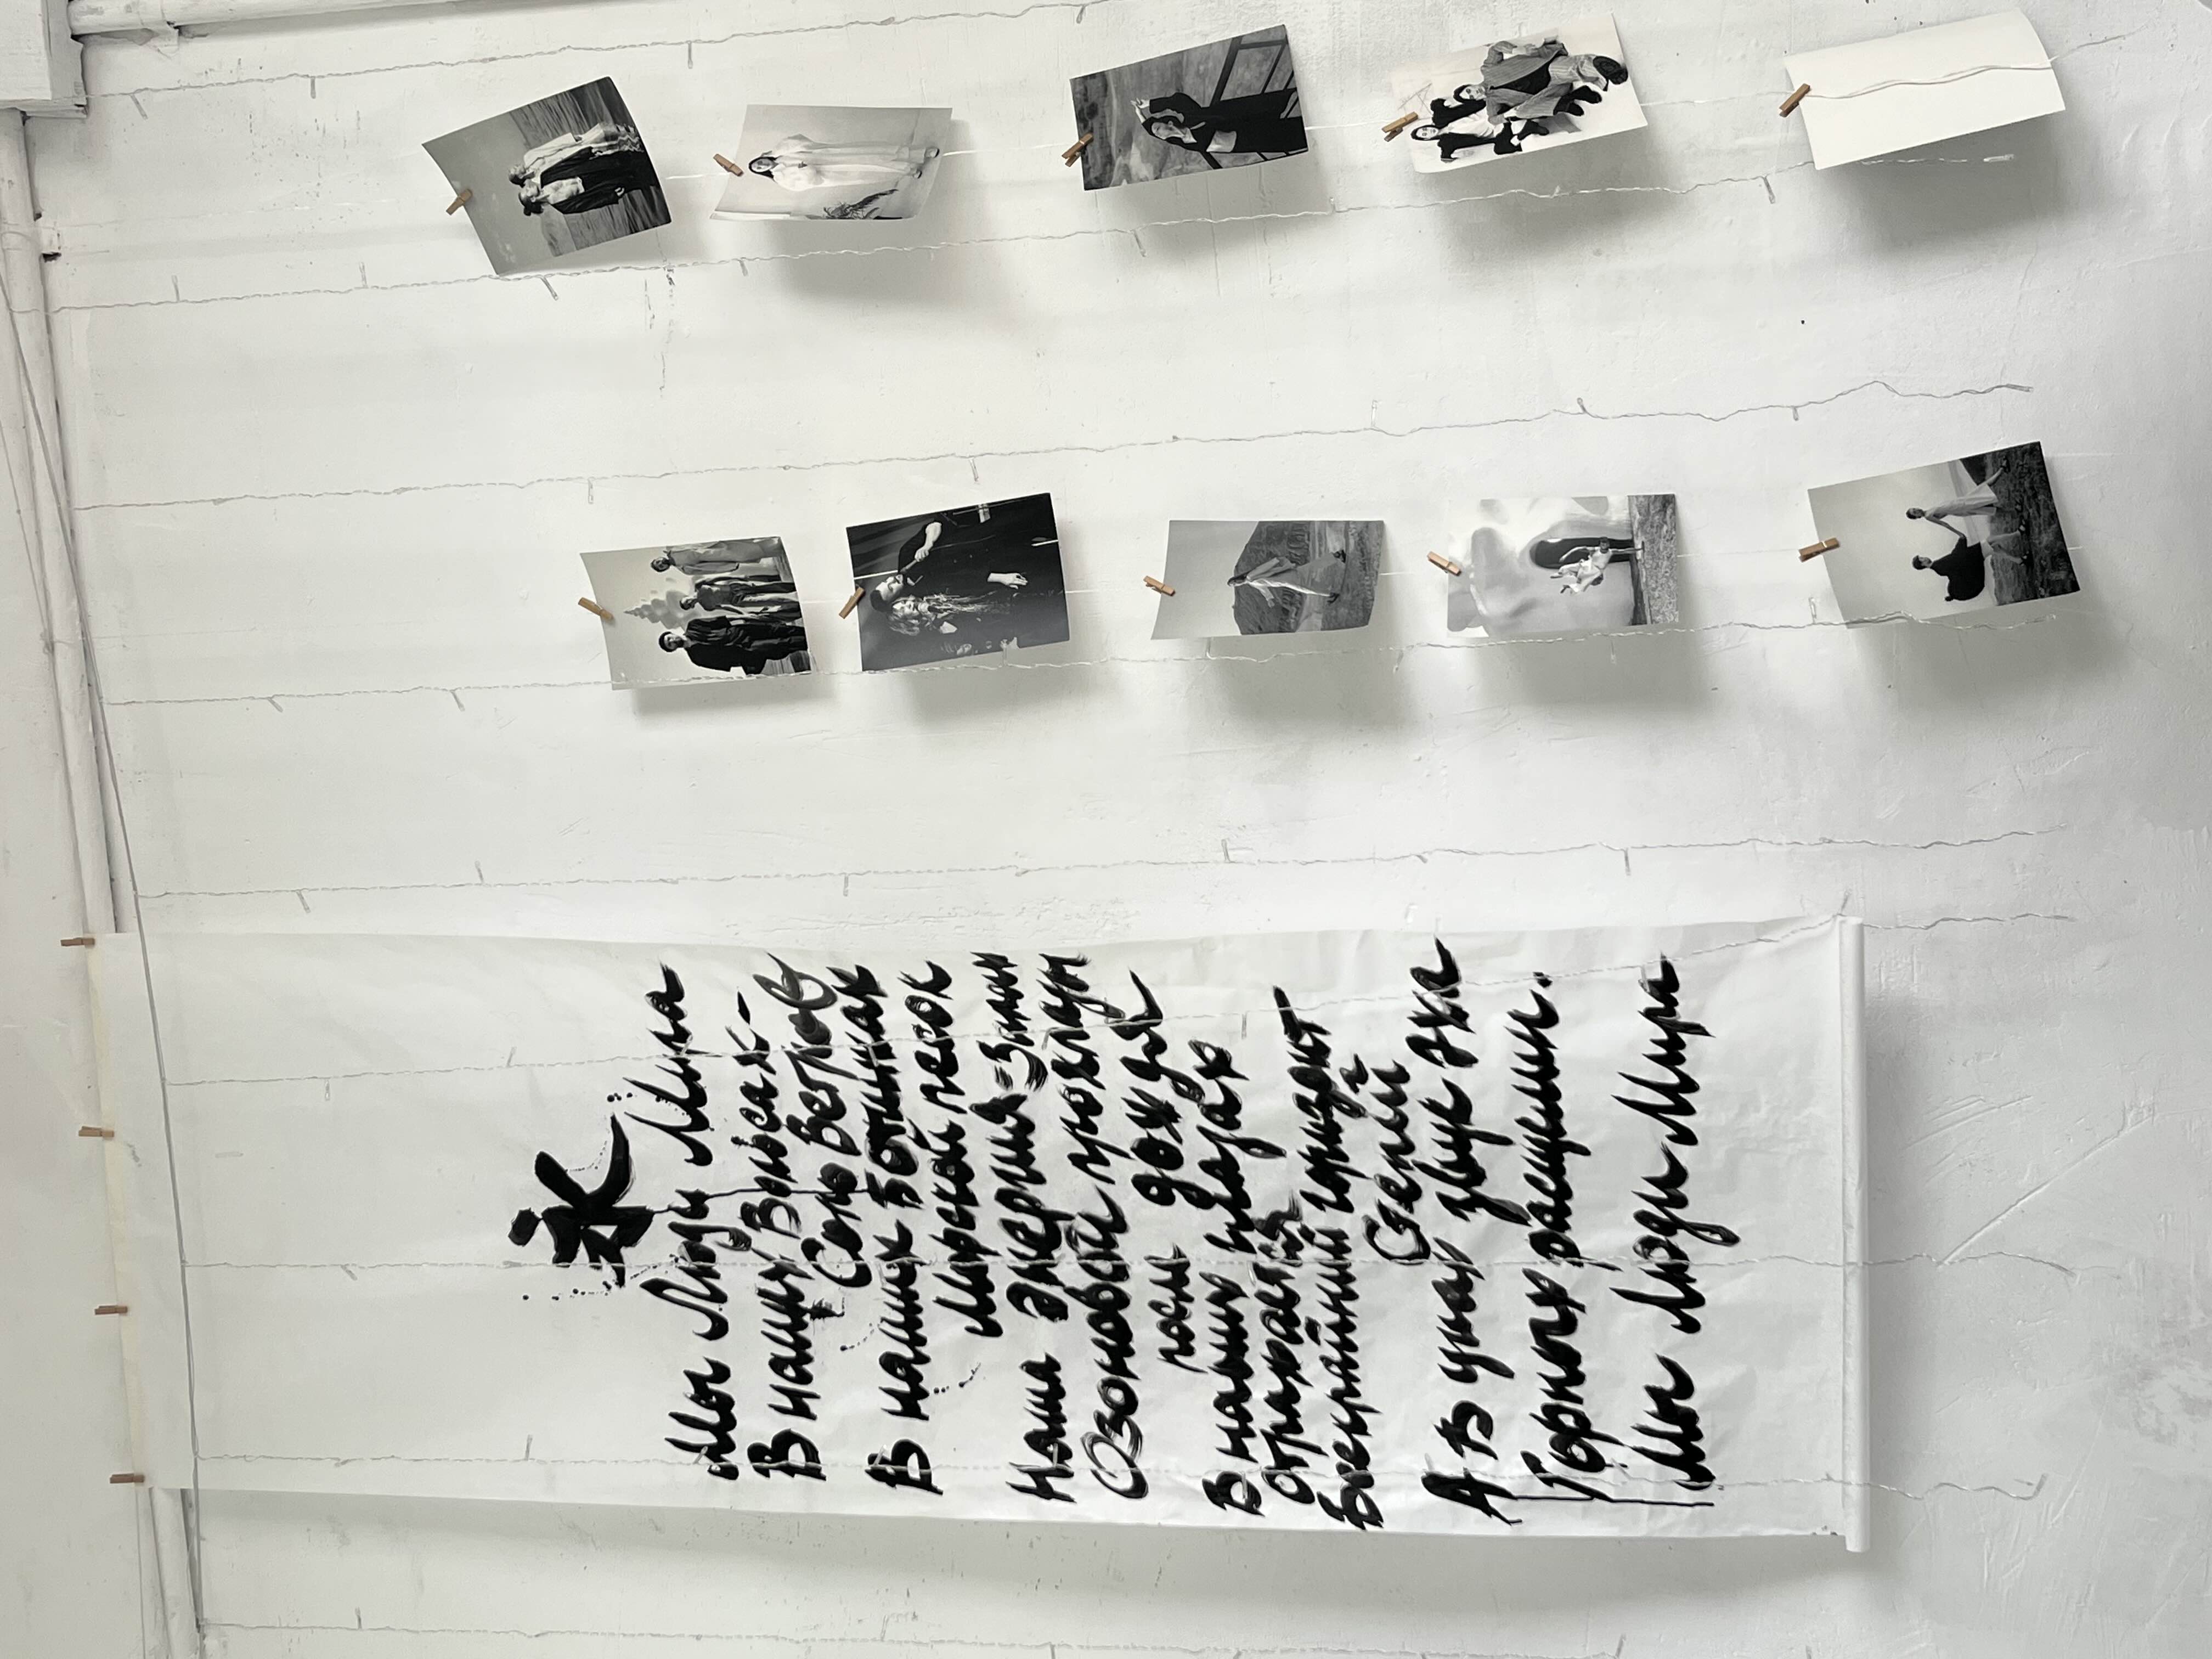 永
Мы Люди Мира
В наших Волосах -
Соль Ветров
В наших Ботинках
Морской песок
Наша Энергия - Знак
Озоновой прохлады
после дождя
В наших глазах
отражается
Бескрайний горизонт
Степей
А В ушах звук Эха
Горных расщелин.
Мы Люди Мира